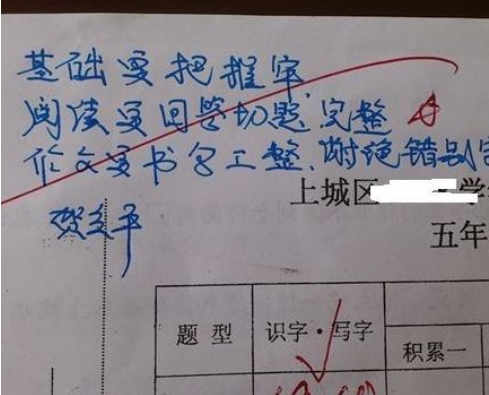 基础要把握牢
阅读要回答切题完整
作文要书写工整、绝错别字
上城区 学
五年
题型 识字·写字 积累一